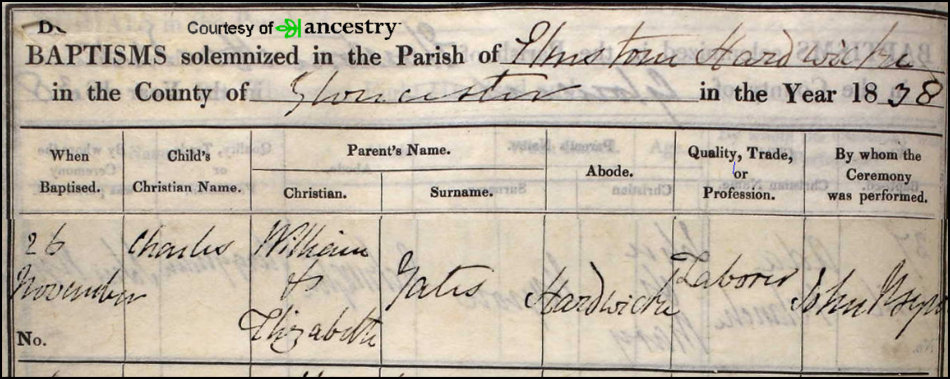 Courtesy of ancestry
BAPTISMS solemnized in the Parish of Elmstone Hardwicke
in the County of Gloucester in the Year 1838
When
Baptised.
Child's
Christian Name.
Parent's Name.
Christian.
Surname.
Abode.
Quality, Trade,
or
Profession.
By whom the
Ceremony
was performed.
26
November
No.
Charles
William
&
Elizabeth
Yates
Hardwicke
Laborer
John